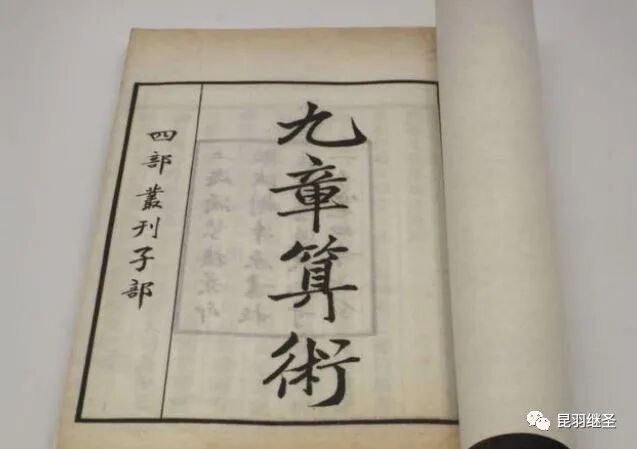 九章算術
四部叢刊子部
昆羽继圣